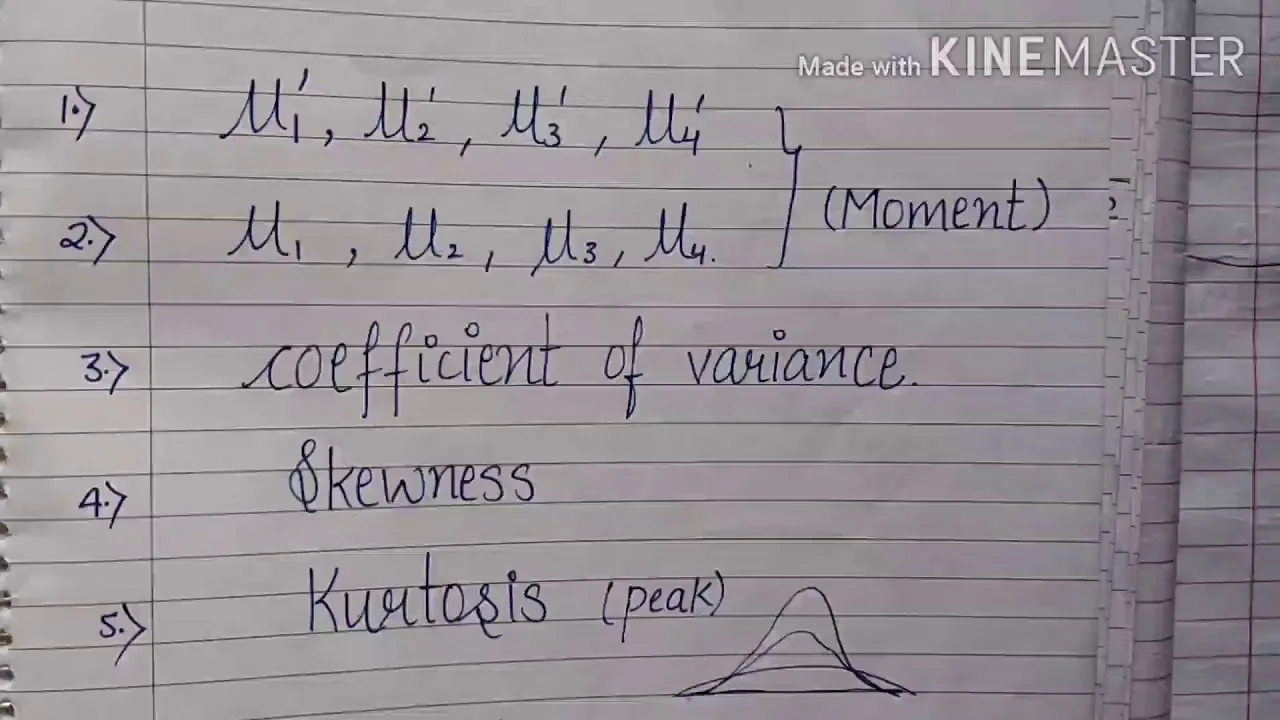 Made with KINEMASTER
1.) μ₁′, μ₂′, μ₃′, μ₄′
(Moment)
2.) μ₁, μ₂, μ₃, μ₄.
3.) coefficient of variance.
4.) Skewness
5.) Kurtosis (peak)